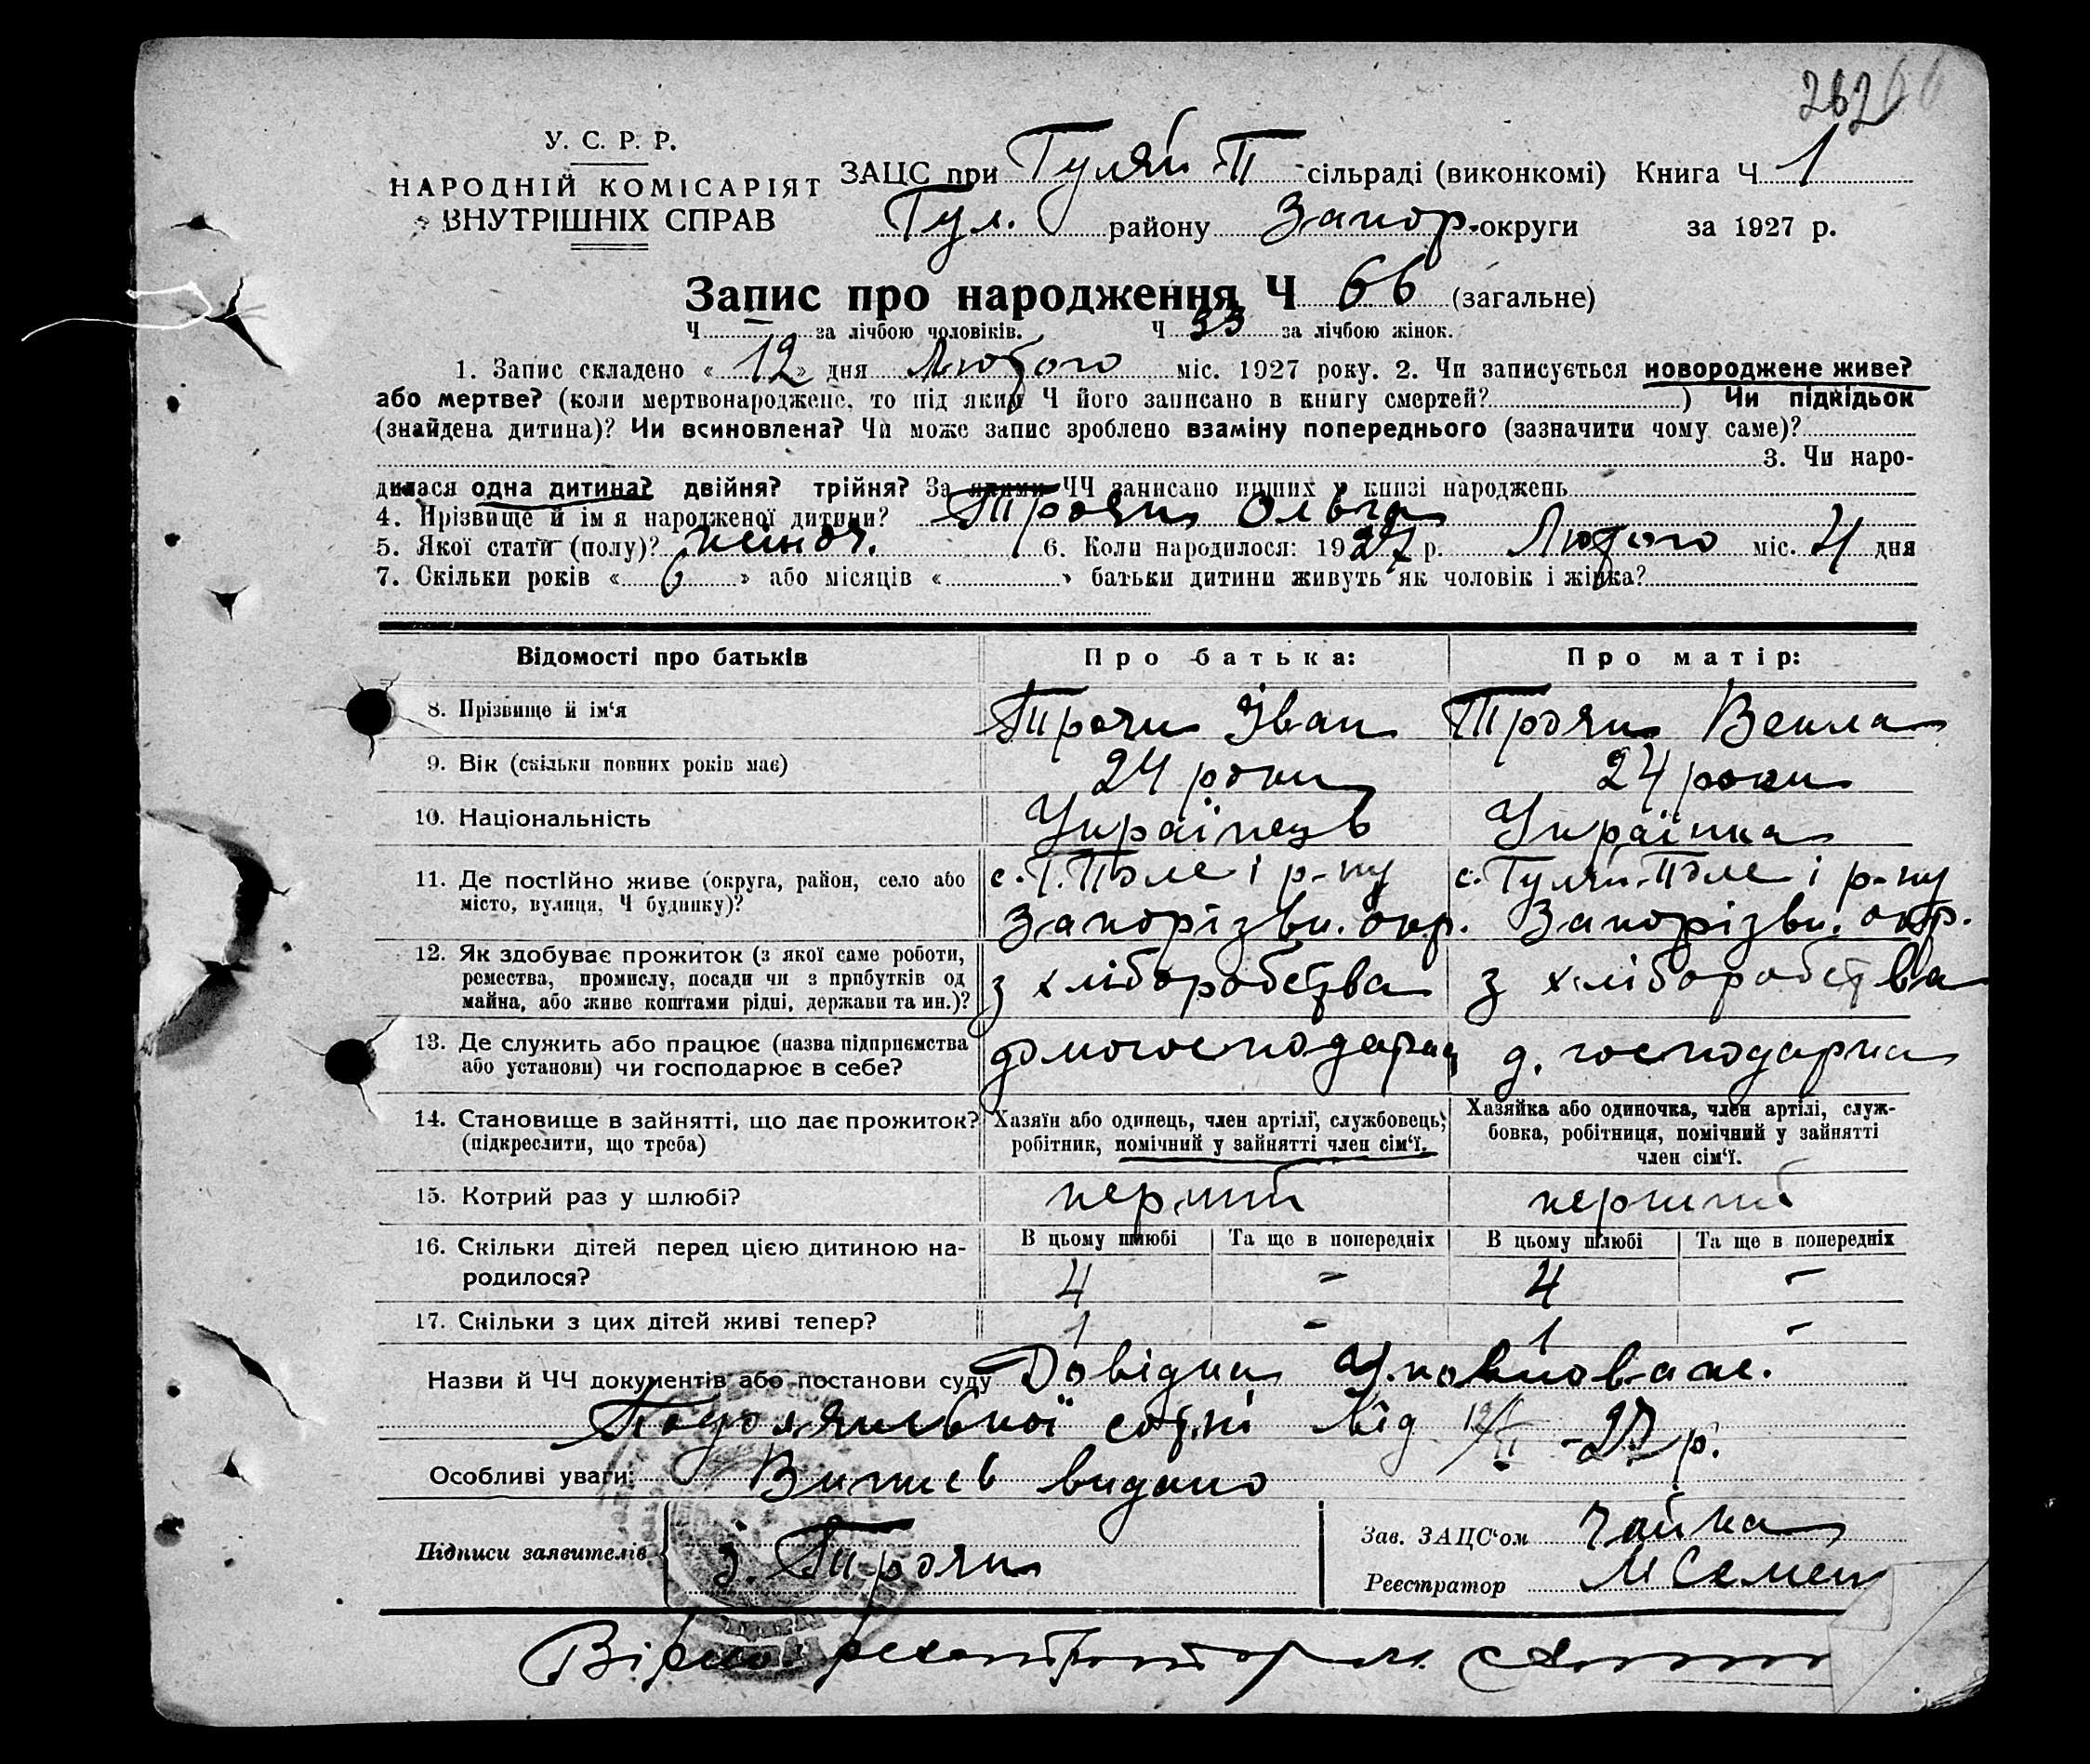 262
У. С. Р. Р.
НАРОДНІЙ КОМІСАРІЯТ
ВНУТРІШНІХ СПРАВ
ЗАЦС при Гуляй-П сільраді (виконкомі) Книга Ч 1
Гул. району Запор. округи за 1927 р.
Запис про народження Ч 66 (загальне)
Ч — за лічбою чоловіків. Ч 33 за лічбою жінок.
1. Запис складено « 12 » дня Лютого міс. 1927 року. 2. Чи записується новороджене живе?
або мертве? (коли мертвонароджене, то під яким Ч його записано в книгу смертей? ) Чи підкідьок
(знайдена дитина)? Чи всиновлена? Чи може запис зроблено взаміну попереднього (зазначити чому саме)?
3. Чи наро-
дилася одна дитина? двійня? трійня? За якими ЧЧ записано инших у книзі народжень
4. Прізвище й ім'я народженої дитини? Троян Ольга
5. Якої стати (полу)? жіноч. 6. Коли народилося: 1927 р. Лютого міс. 4 дня
7. Скільки років « 6 » або місяців « » батьки дитини живуть як чоловік і жінка?
Відомості про батьків Про батька: Про матір:
8. Прізвище й ім'я Троян Іван Троян Векла
9. Вік (скільки повних років має) 24 роки 24 роки
10. Національність Українець Українка
11. Де постійно живе (округа, район, село або місто, вулиця, Ч будинку)? с. Г. Поле і р-ну Запорізьк. окр. с. Гуляй-Поле і р-ну Запорізьк. окр.
12. Як здобуває прожиток (з якої саме роботи, ремества, промислу, посади чи з прибутків од майна, або живе коштами рідні, держави та ин.)? з хліборобства з хліборобства
13. Де служить або працює (назва підприємства або установи) чи господарює в себе? домогосподарка д. господарка
14. Становище в зайнятті, що дає прожиток? (підкреслити, що треба) Хазяїн або одинець, член артілі, службовець, робітник, помічний у зайнятті член сім'ї. Хазяйка або одиночка, член артілі, служ-бовка, робітниця, помічний у зайнятті член сім'ї.
15. Котрий раз у шлюбі? перший перший
16. Скільки дітей перед цією дитиною на-родилося? В цьому шлюбі 4 Та ще в попередніх – В цьому шлюбі 4 Та ще в попередніх –
17. Скільки з цих дітей живі тепер? 1 – 1 –
Назви й ЧЧ документів або постанови суду Довідки Уповноваж.
сотні від 12/II-27 р.
Особливі уваги: Випись видано
Підписи заявителів І. Троян
Зав. ЗАЦС'ом Чайка
Реєстратор М Семен
Вірно: